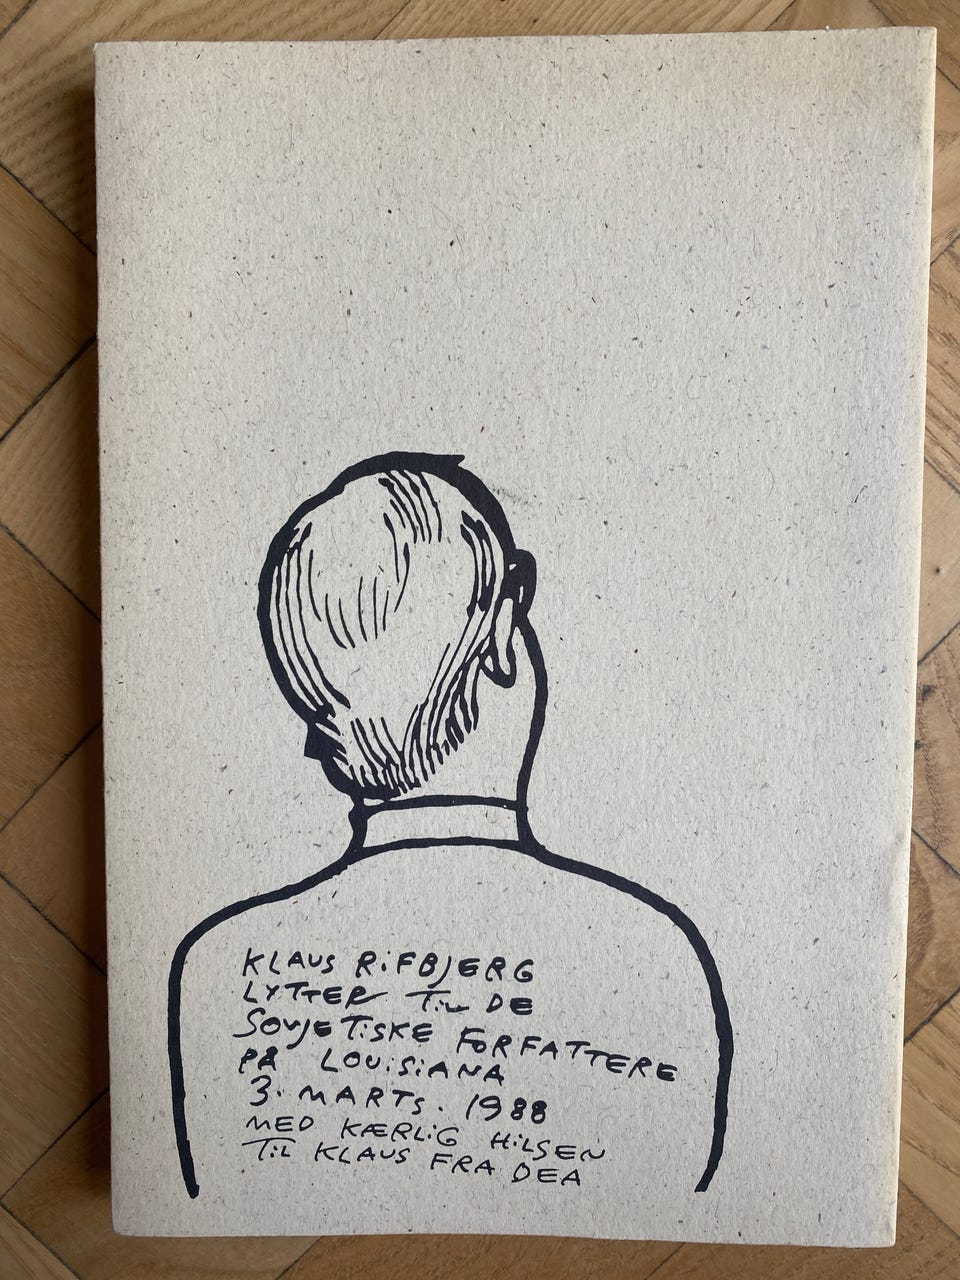 KLAUS RIFBJERG
LYTTER TIL DE
SOVJETISKE FORFATTERE
PÅ LOUISIANA
3. MARTS. 1988
MED KÆRLIG HILSEN
TIL KLAUS FRA DEA